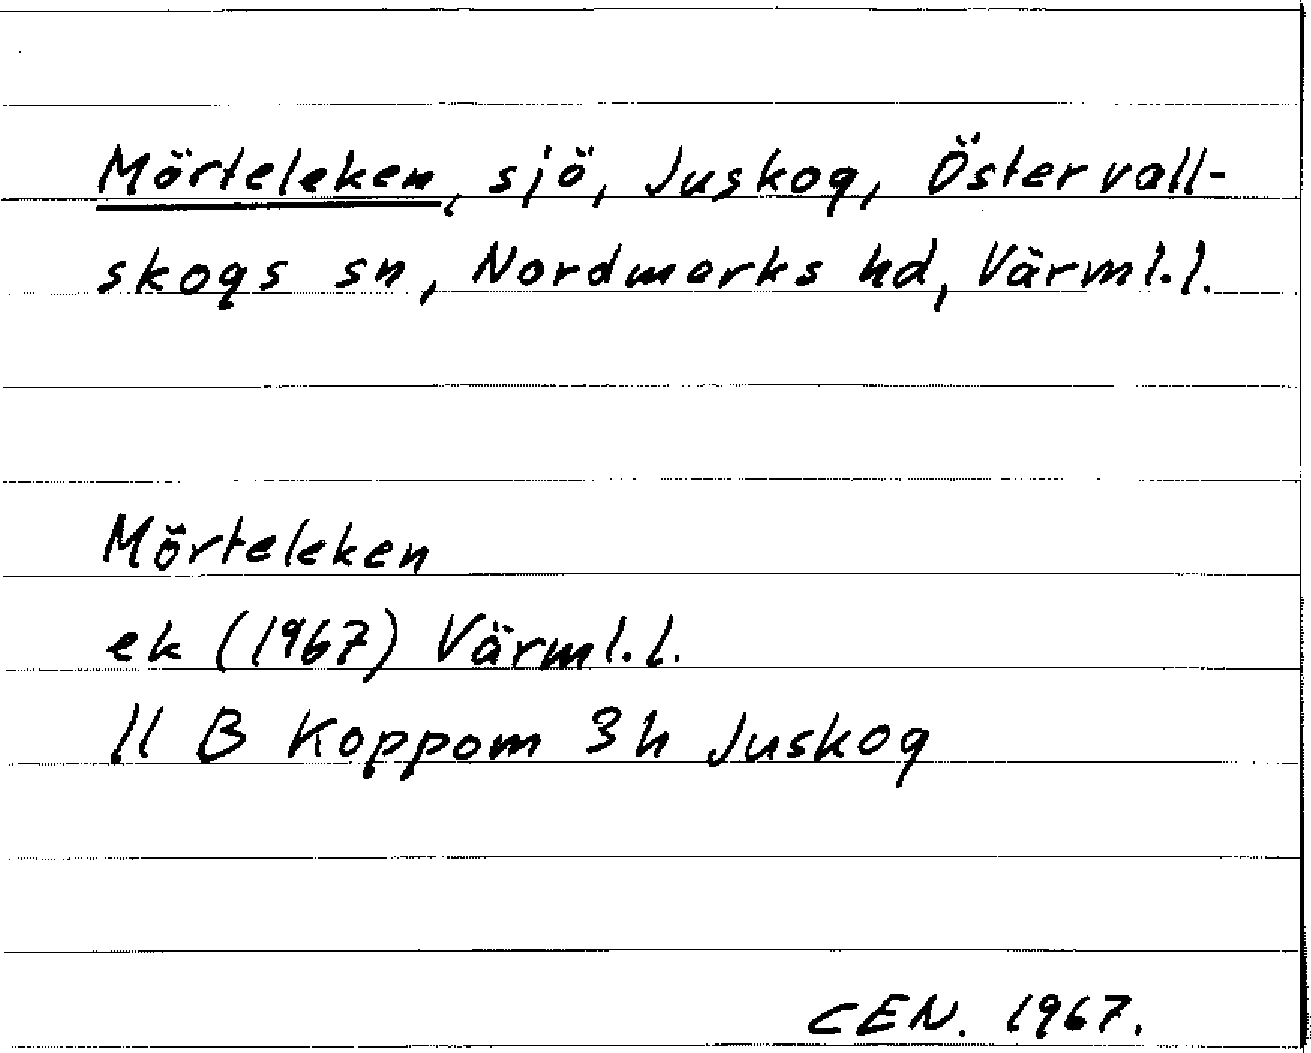 Mörteleken, sjö, Juskog, Östervall-
skogs sn, Nordmarks hd, Värml.l.
Mörteleken
ek (1967) Värml.l.
11 B Koppom 3h Juskog
CEN. 1967.